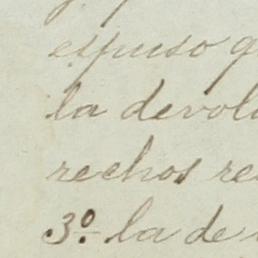 espuso q
la devol
rechos re
3º. la de